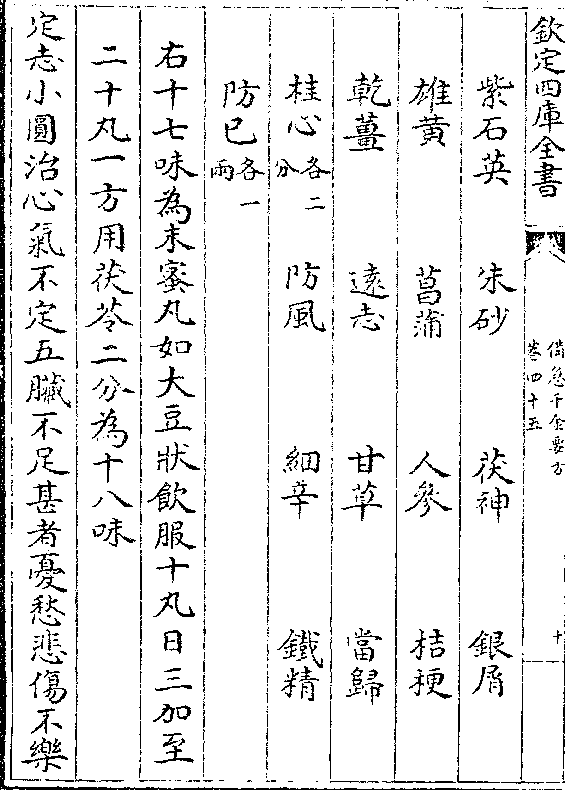 欽定四庫全書
備急千金要方
卷四十五
十
紫石英 朱砂 茯神 銀屑
雄黃 菖蒲 人參 桔梗
乾薑 遠志 甘草 當歸
桂心各二分 防風 細辛 鐵精
防已各一兩
右十七味為末蜜丸如大豆狀飲服十丸日三加至
二十丸一方用茯苓二分為十八味
定志小圓治心氣不定五臓不足甚者憂愁悲傷不樂